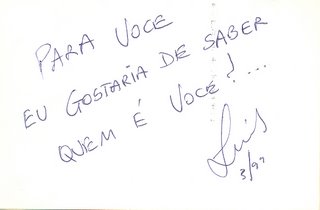 PARA VOCE
EU GOSTARIA DE SABER
QUEM É VOCE?...
Luis
3/97